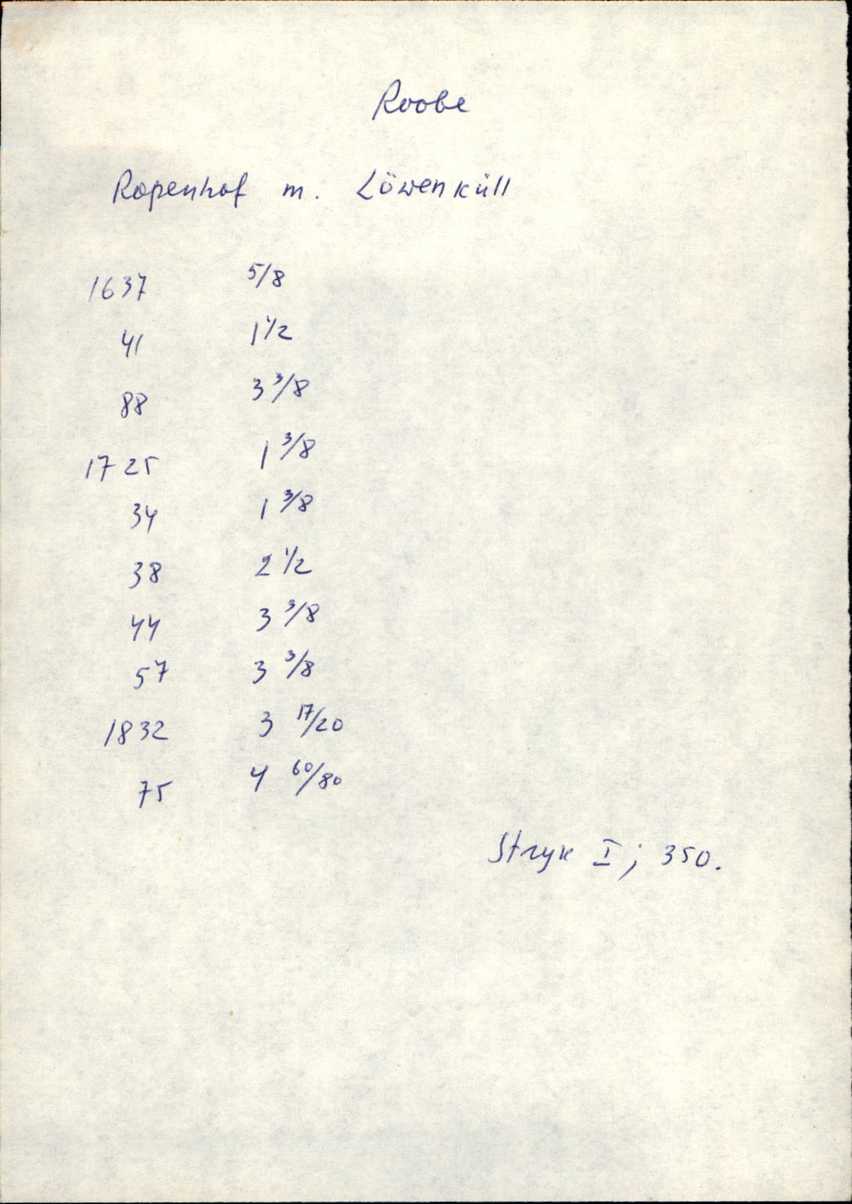 Roobe
Ropenhof m. Löwenküll
1637 5/8
41 1 1/2
88 3 3/8
1725 1 3/8
34 1 3/8
38 2 1/2
44 3 3/8
57 3 3/8
1832 3 17/20
75 4 60/80
Stryk I; 350.